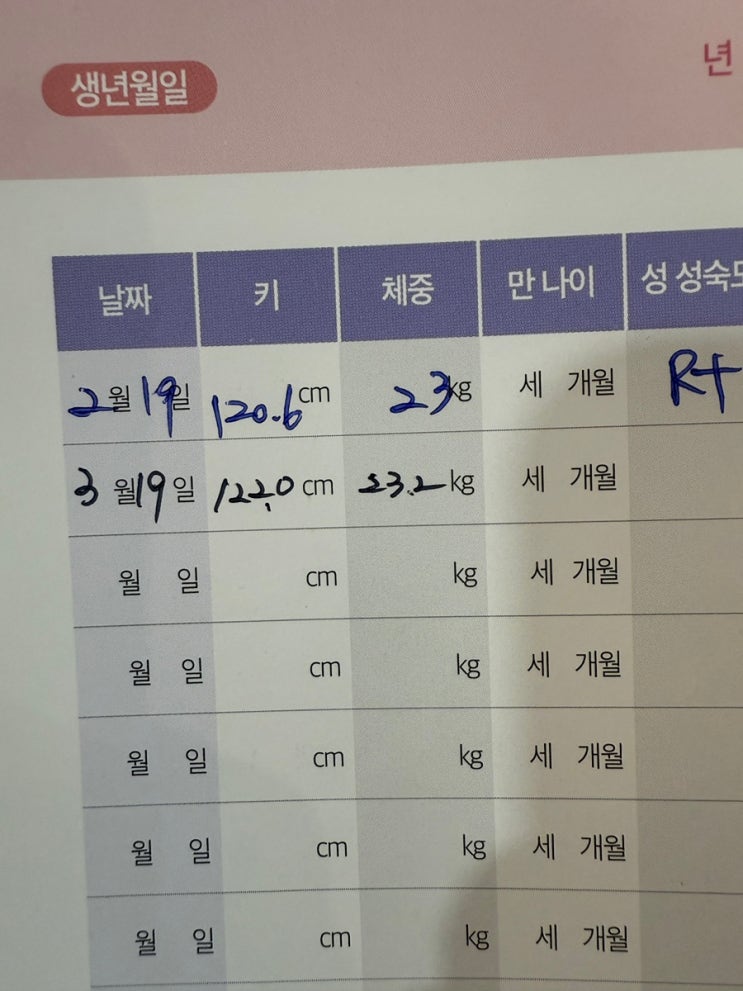 년
생년월일
날짜 키 체중 만 나이 성 성숙도
2월 19일 120.6cm 23kg 세 개월 R+
3월 19일 122.0cm 23.2kg 세 개월
월 일 cm kg 세 개월
월 일 cm kg 세 개월
월 일 cm kg 세 개월
월 일 cm kg 세 개월
월 일 cm kg 세 개월